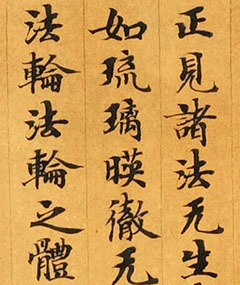 正見諸法无生
如琉璃暎徹无
法輪法輪之體